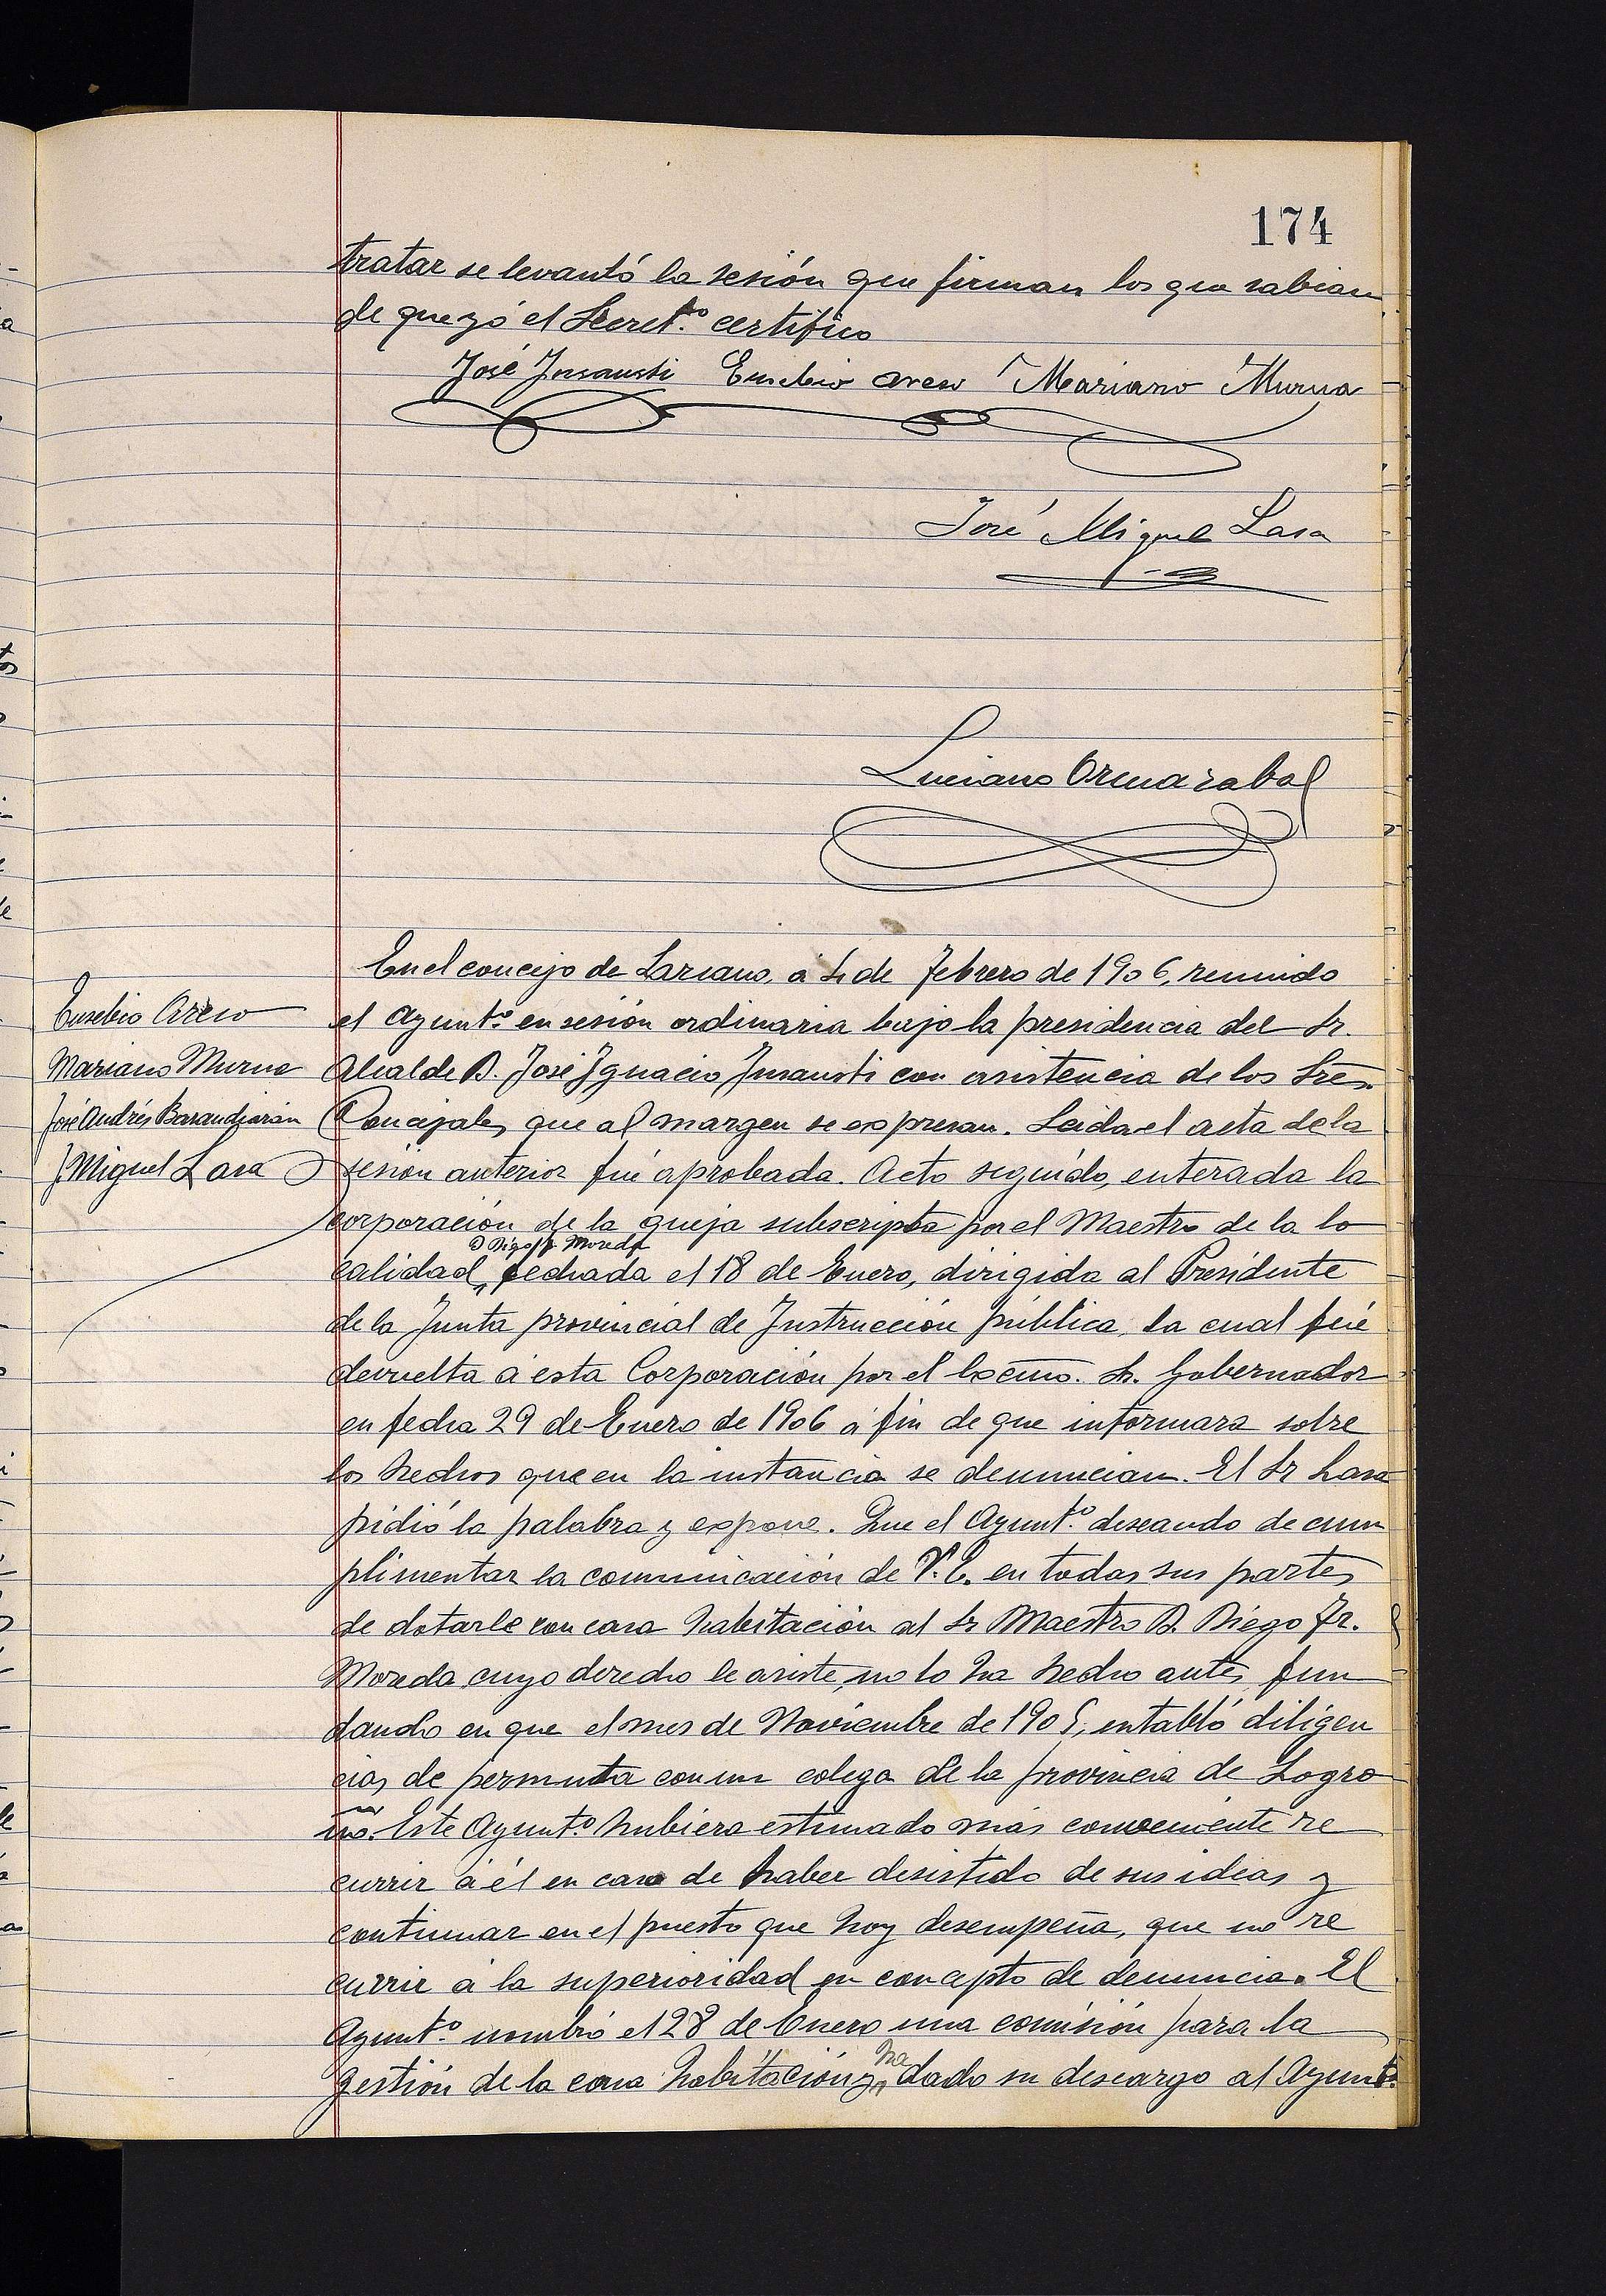 174
tratar se levantó la sesión que firman los que sabian
de que yó el Secret.to certifico
José Insausti Eusebio Areso Mariano Murua
José Miguel Lasa
Luciano Ormazabal
En el concejo de Larsano, á 4 de Febrero de 1906, reunido
Eusebio Areso
el Ayunt.o en sesión ordinaria bajo la presidencia del Sr.
Mariano Murua
Alcalde D. José Ignacio Insausti con asistencia de los Sres.
José Andrés Barandiarán
Concejales que al margen se expresan. Leida el acta de la
J. Miguel Lasa
sesión anterior fué aprobada. Acto seguido, enterada la
corporación de la queja subscripta por el Maestro de la lo
D Diego Fr Moreda
calidad, fechada el 18 de Enero, dirigida al Presidente
de la Junta provincial de Instrucción pública, la cual fué
devuelta á esta Corporación por el Excmo. Sr. Gobernador
en fecha 29 de Enero de 1906 á fin de que informara sobre
los hechos que en la instancia se denuncian. El Sr Lasa
pidió la palabra y expone. Que el Ayunt.o deseando de cum
plimentar la comunicación de V. E. en todas sus partes
de dotarle con casa habitación al Sr Maestro D. Diego Fr.
Moreda cuyo derecho le asiste, no lo ha hecho antes fun
dando en que el mes de Noviembre de 1905, entabló diligen
cias de permuta con un colega de la provincia de Logro
ño. Este Ayunt.o hubiera estimado más conveniente re
currir á él en caso de haber desistido de sus ideas y
continuar en el puesto que hoy desempeña, que no re
currir á la superioridad en concepto de denuncia. El
Ayunt.o nombró el 28 de Enero una comisión para la
ha
gestión de la casa habitación y dado su descargo al Ayunt.o